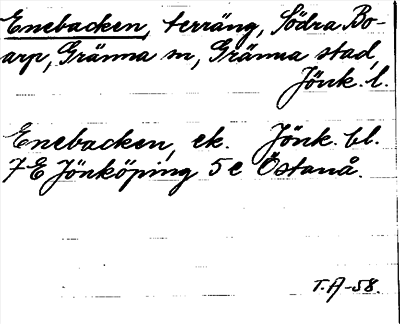 Enebacken, terräng, Södra Bo-
arp, Gränna sn, Gränna stad,
Jönk. l.
Enebacken, ek. Jönk. bl.
7 E Jönköping 5 e Östanå.
T.A-58.